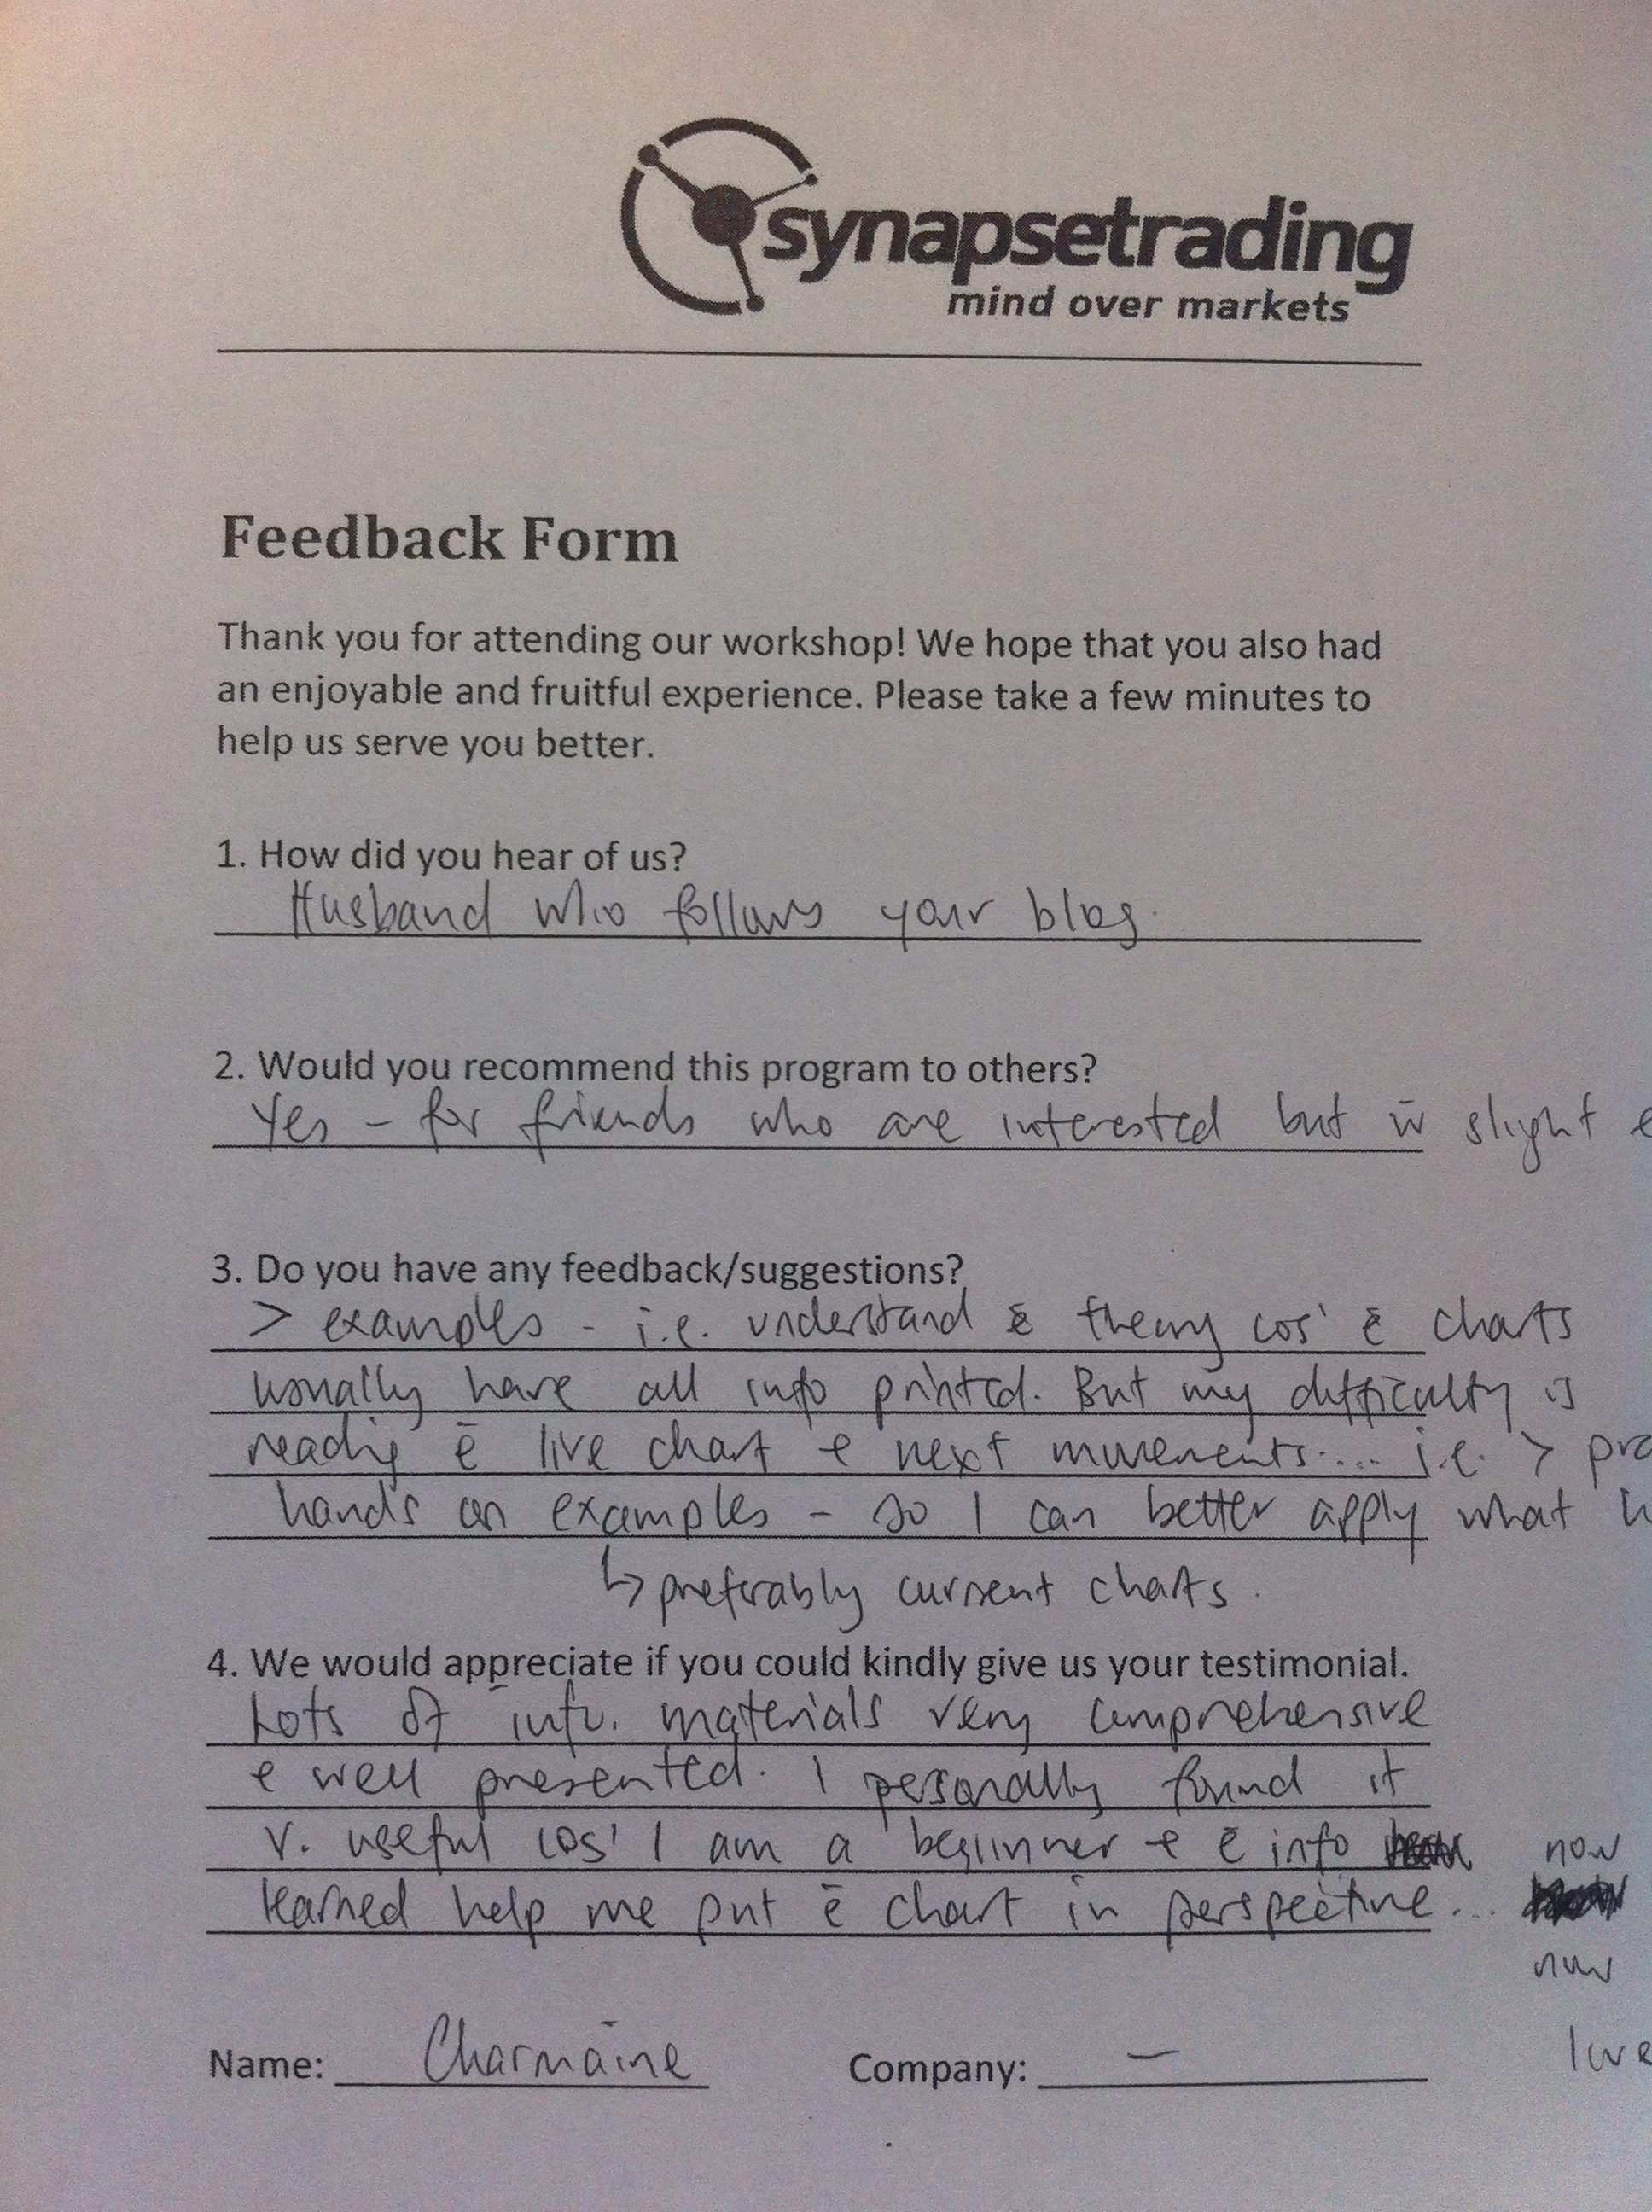 synapsetrading
mind over markets
Feedback Form
Thank you for attending our workshop! We hope that you also had
an enjoyable and fruitful experience. Please take a few minutes to
help us serve you better.
1. How did you hear of us?
Husband who follows your blog.
2. Would you recommend this program to others?
Yes - for friends who are interested but w̄ slight
3. Do you have any feedback/suggestions?
> examples - i.e. understand ē theory cos' ē charts
usually have all info printed. But my difficulty is
readig ē live chart & next movements.... i.e. >
hands on examples - so I can better apply what
↳ preferably current charts.
4. We would appreciate if you could kindly give us your testimonial.
Lots of info. materials very comprehensive
& well presented. I personally found it
v. useful cos' I am a beginner & ē info now
learned help me put ē chart in perspective...
now
Name: Charmaine Company: —